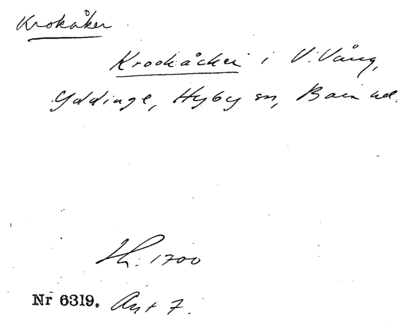 Krokåker
Krooåcker i V. Vång,
Yddinge, Hyby sn, Bara hd.
Lh. 1700
Nr 6319. Ant 7.